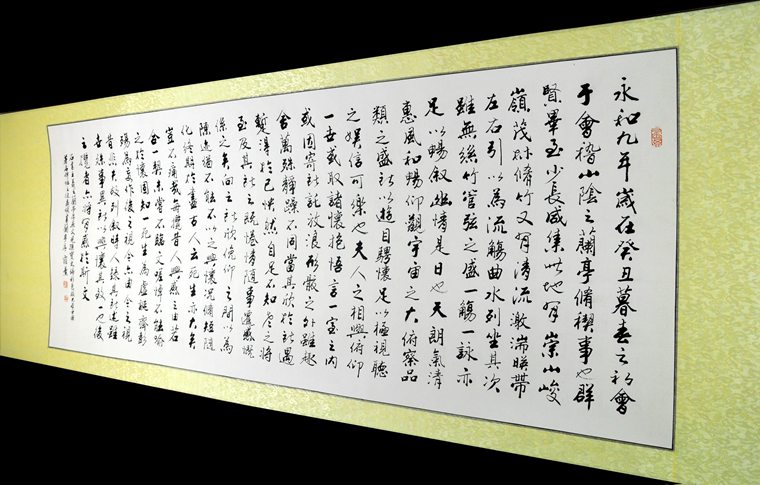 永和九年歲在癸丑暮春之初會
于會稽山陰之蘭亭脩禊事也群
賢畢至少長咸集此地有崇山峻
嶺茂林脩竹又有清流激湍暎帶
左右引以為流觴曲水列坐其次
雖無絲竹管弦之盛一觴一詠亦
足以暢敘幽情是日也天朗氣清
惠風和暢仰觀宇宙之大俯察品
類之盛所以遊目騁懷足以極視聽
之娛信可樂也夫人之相與俯仰
一世或取諸懷抱悟言一室之內
或因寄所託放浪形骸之外雖趣
舍萬殊靜躁不同當其欣於所遇
暫得於己怏然自足不知老之將
至及其所之既惓情隨事遷感慨
係之矣向之所欣俛仰之間以為
陳迹猶不能不以之興懷況脩短隨
化終期於盡古人云死生亦大矣
豈不痛哉每攬昔人興感之由若
合一契未嘗不臨文嗟悼不能喻
之於懷固知一死生為虛誕齊彭
殤為妄作後之視今亦由今之視
昔悲夫故列敘時人錄其所述雖
世殊事異所以興懷其致一也後
之覽者亦將有感於斯文